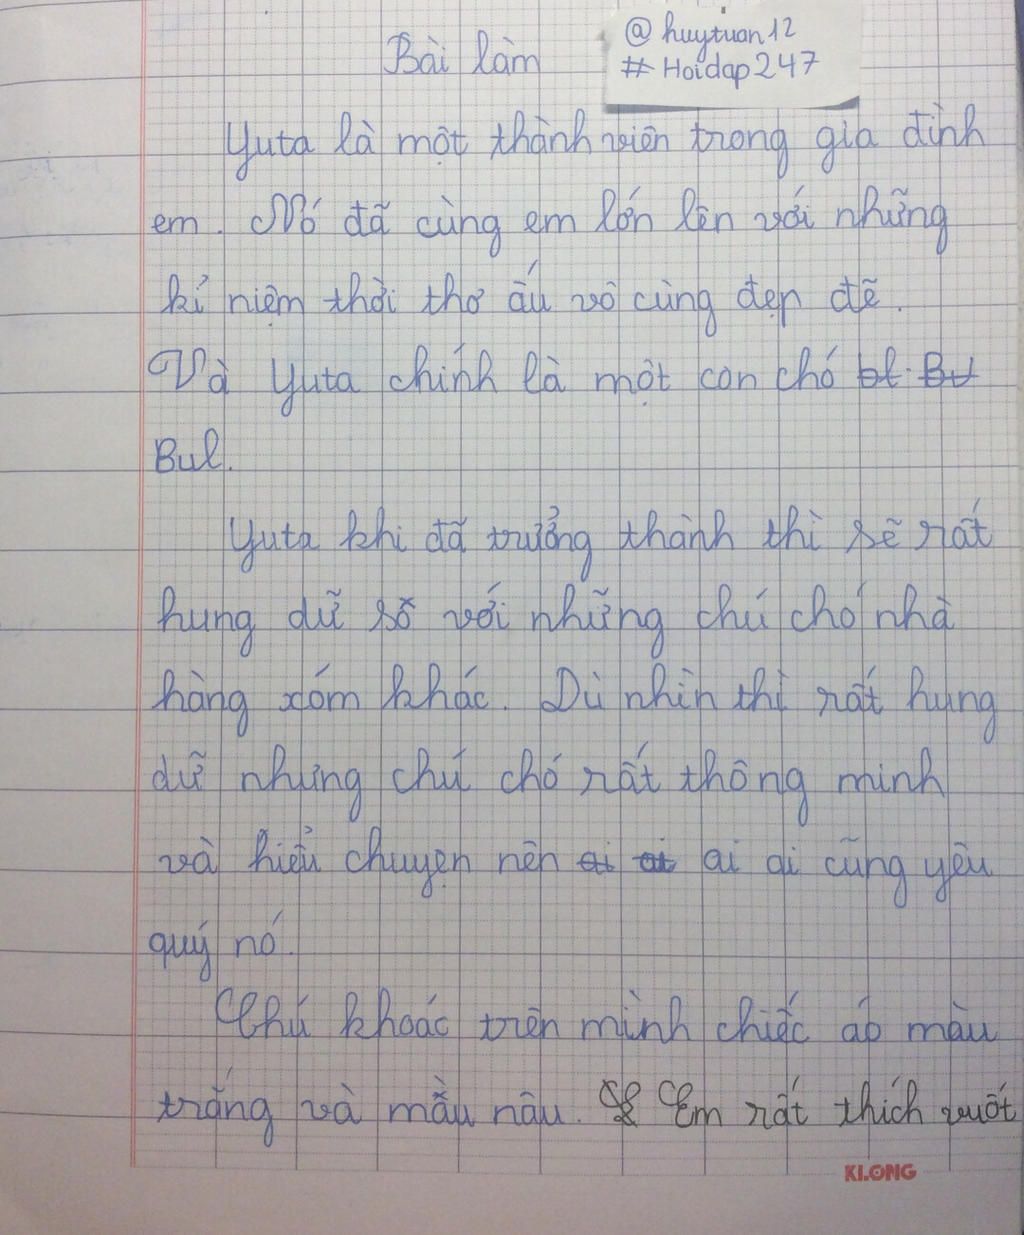 Bài làm
@huytuan12
#Hoidap247
Yuta là một thành viên trong gia đình
em. Nó đã cùng em lớn lên với những
kỉ niệm thời thơ ấu vô cùng đẹp đẽ.
Và Yuta chính là một con chó bl. Bu
Bul.
Yuta khi đã trưởng thành thì sẽ rất
hung dữ số với những chú chó nhà
hàng xóm khác. Dù nhìn thì rất hung
dữ nhưng chú chó rất thông minh
và hiểu chuyện nên ai ai ai ai cũng yêu
quý nó.
Chú khoác trên mình chiếc áo màu
trắng và mầu nâu. Em rất thích vuốt
KLONG